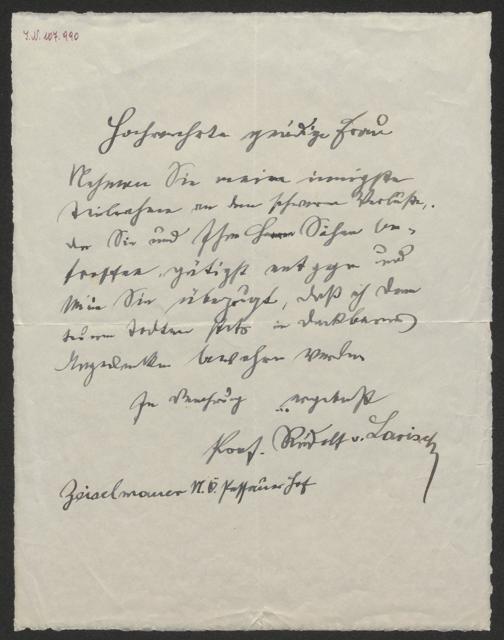 I.N. 107.990
Hochverehrte gnädige Frau
Nehmen Sie meine innigste
Teilnahme an dem schweren Verluste,
der Sie und Ihre Herrn Söhne be-
troffen, gütigst entgegen und
seien Sie überzeugt, daß ich dem
teuren Todten stets in dankbarem
Angedenken bewahren werde
In Verehrung ergebenst
Prof. Rudolf v. Larisch
Zeiselmauer N.Ö. Passauerhof